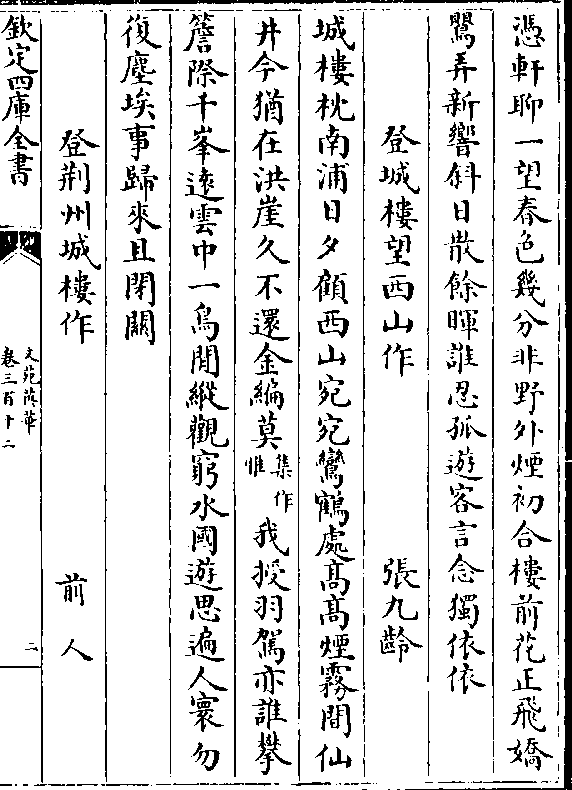 憑軒聊一望春色幾分非野外煙初合樓前花正飛嬌
鸎弄新響斜日散餘暉誰忍孤遊客言念獨依依
登城樓望西山作 張九齡
城樓枕南浦日夕顧西山宛宛鸞鶴處髙髙煙霧間仙
井今猶在洪崖久不還金編莫集作惟我授羽駕亦誰攀
簷際千峯逺雲中一鳥閒縱觀窮水國遊思遍人寰勿
復塵埃事歸來且閉闗
登荆州城樓作 前人
欽定四庫全書
文苑英華
卷三百十二
二